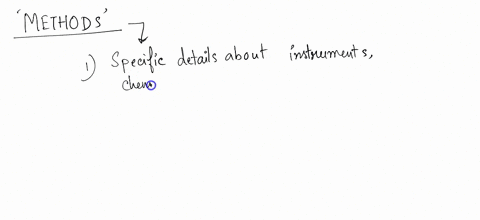 'METHODS'
1) Specific details about instruments,
chem